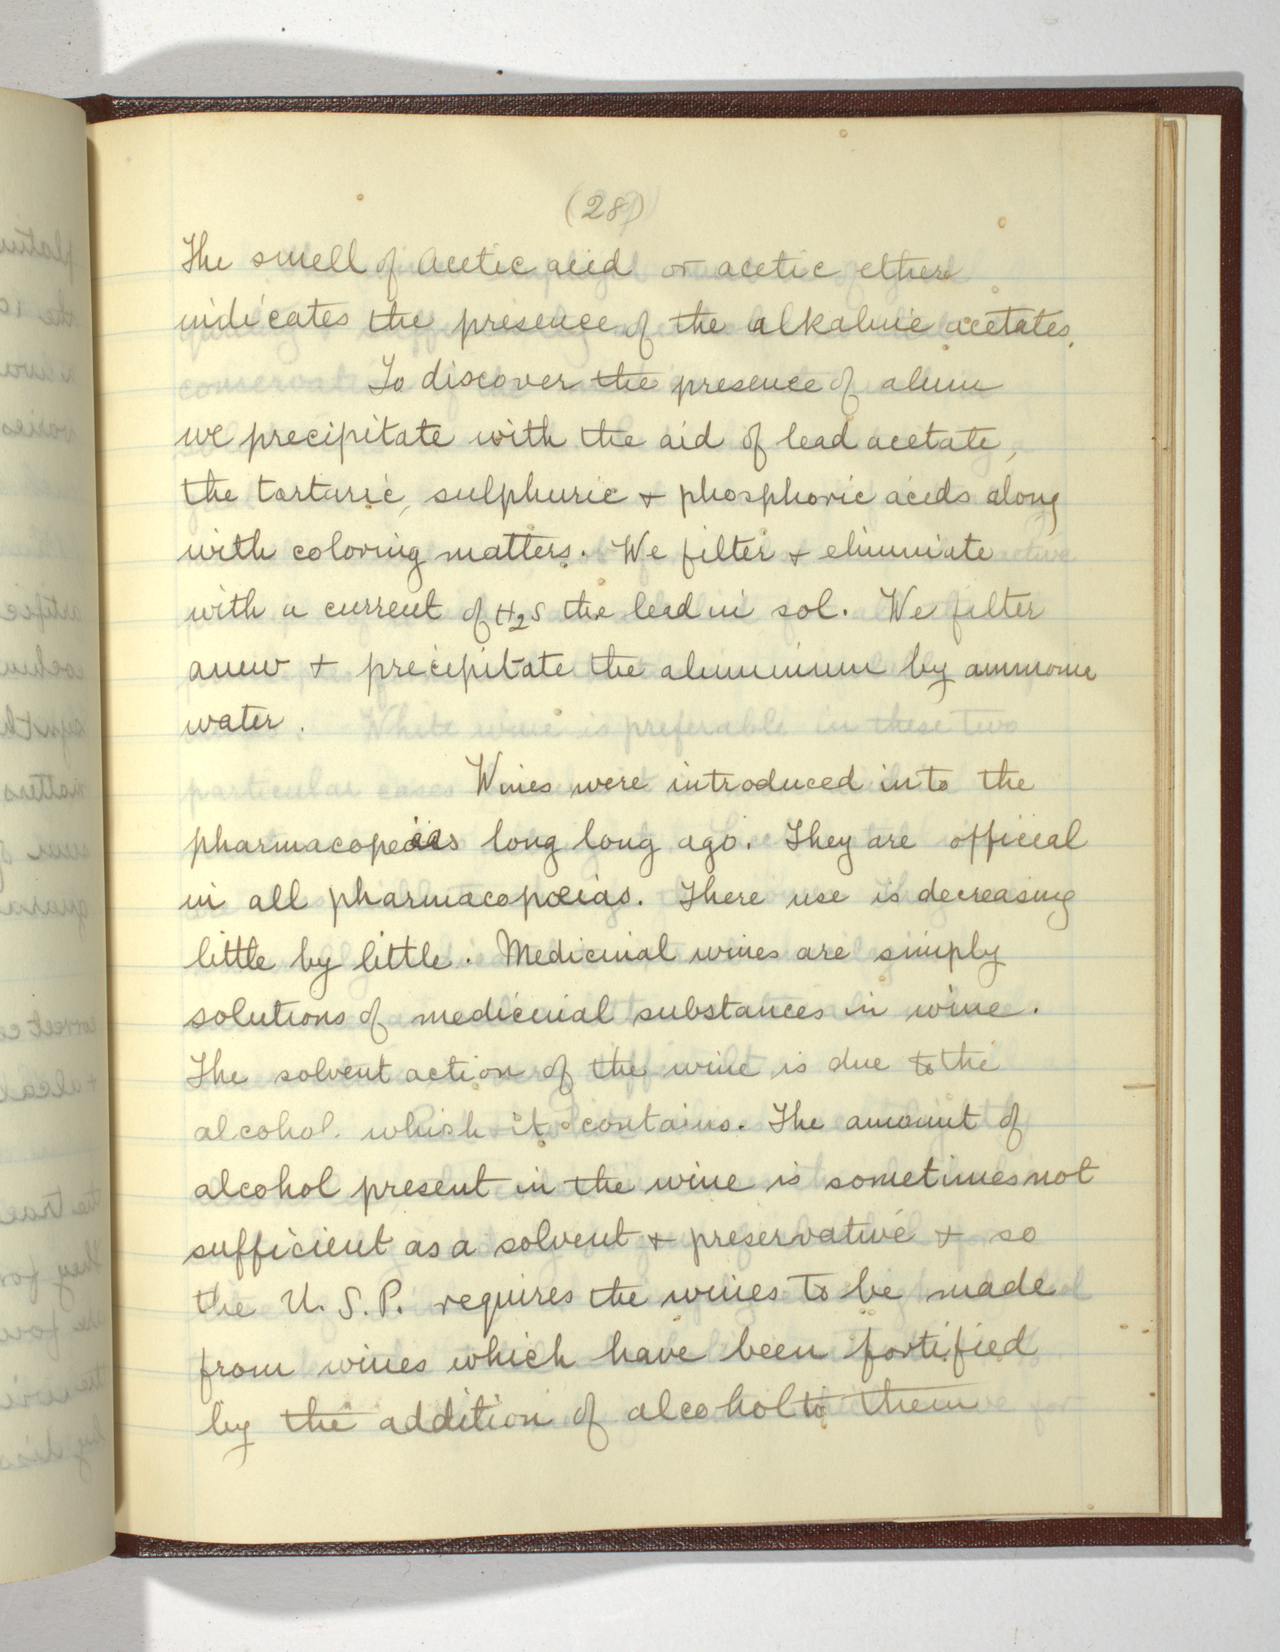 (28)
The smell of Acetic acid or acetic ether
indicates the presence of the alkaline acetates.
To discover the presence of alum
we precipitate with the aid of lead acetate,
the tartaric, sulphuric + phosphoric acids along
with coloring matters. We filter + eliminate
with a current of H2S the lead in sol. We filter
anew + precipitate the aluminium by ammonia
water.
Wines were introduced into the
pharmacopeias long long ago. They are official
in all pharmacopœias. There use is decreasing
little by little. Medicinal wines are simply
solutions of medicinal substances in wine.
The solvent action of the wine is due to the
alcohol which it contains. The amount of
alcohol present in the wine is sometimes not
sufficient as a solvent + preservative + so
the U. S. P. requires the wines to be made
from wines which have been fortified
by the addition of alcohol to them